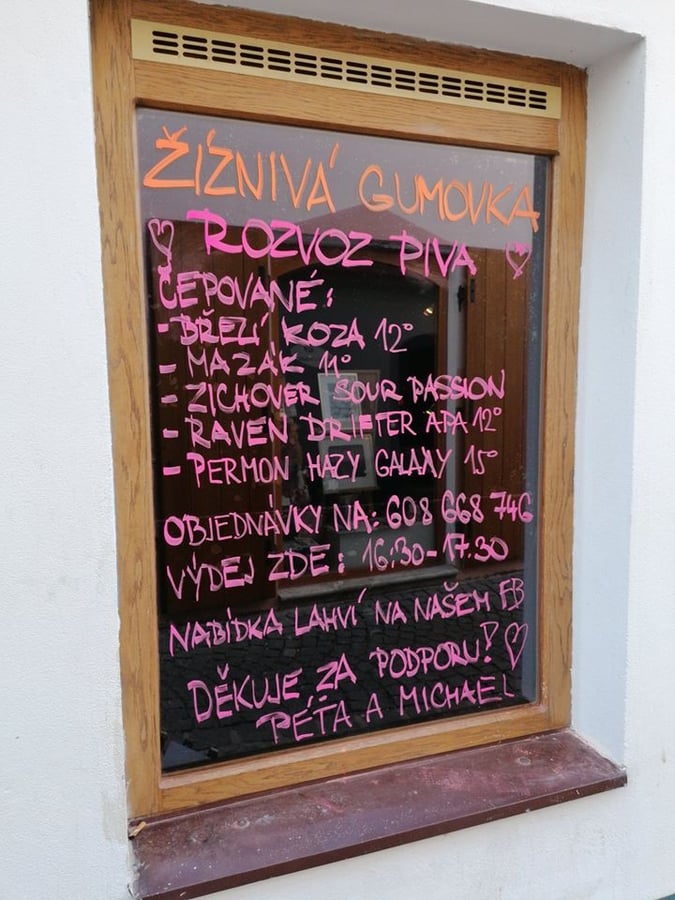 ŽÍZNIVÁ GUMOVKA
♡ ROZVOZ PIVA ♡
ČEPOVANÉ:
- BŘEZÍ KOZA 12°
- MAZÁK 11°
- ZICHOVER SOUR PASSION
- RAVEN DRIFTER APA 12°
- PERMON HAZY GALAXY 15°
OBJEDNÁVKY NA: 608 668 746
VÝDEJ ZDE: 16:30-17.30
NABÍDKA LAHVÍ NA NAŠEM FB
DĚKUJE ZA PODPORU! ♡
PÉŤA A MICHAEL